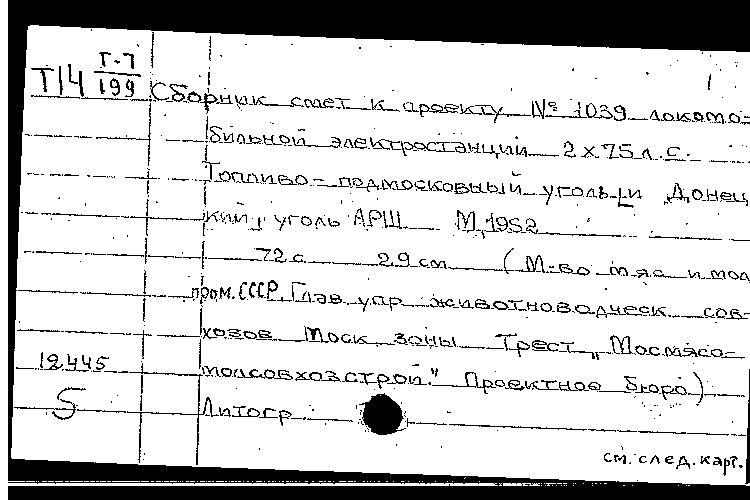 Т14 Г-7
199
Сборник смет к проекту № 1039 локомо-
бильной электростанции 2х75 л.с.
Топливо - подмосковный уголь и Донец
кий, уголь АРШ М, 1952
72 с 29 см (М-во мяс и мол
пром. СССР. Глав. упр животноводческ сов-
хозов Моск. зоны Трест „Мосмясо-
молсовхозстрой." Проектное бюро)
Литогр.
12445
5
см. след. карт.